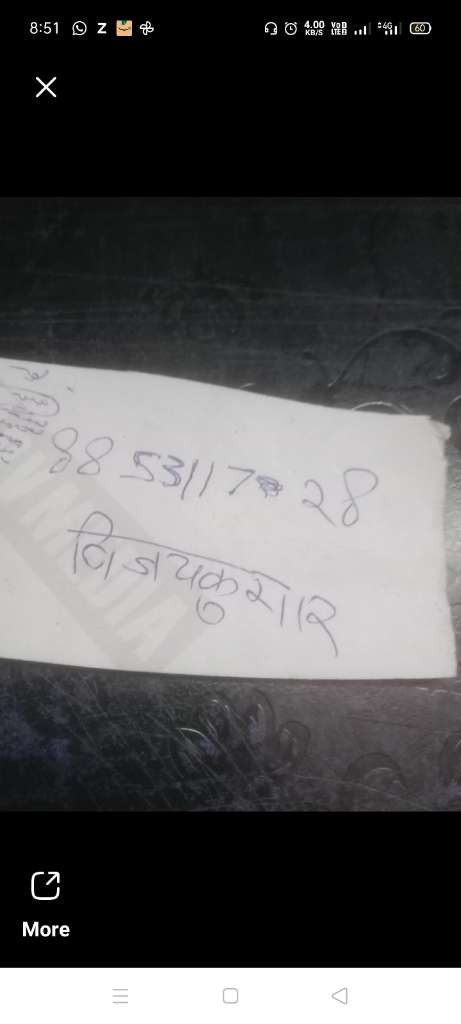 8:51
4.00
KB/S
4G
60
88 53117 28
विजयकुमार
More